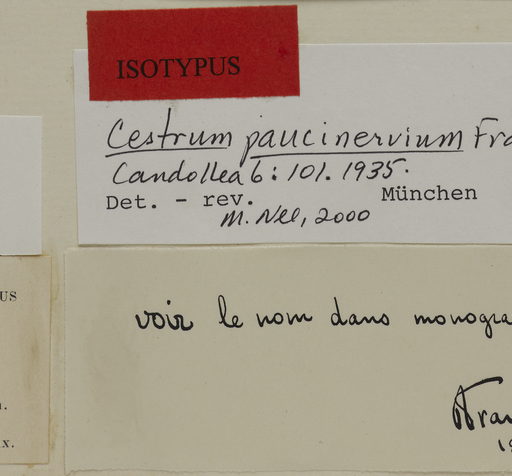 ISOTYPUS
Cestrum paucinervium Fra
Candollea 6: 101. 1935.
Det. - rev. München
M. Nee, 2000
US
voir le nom dans monogra
Fran
19
x.